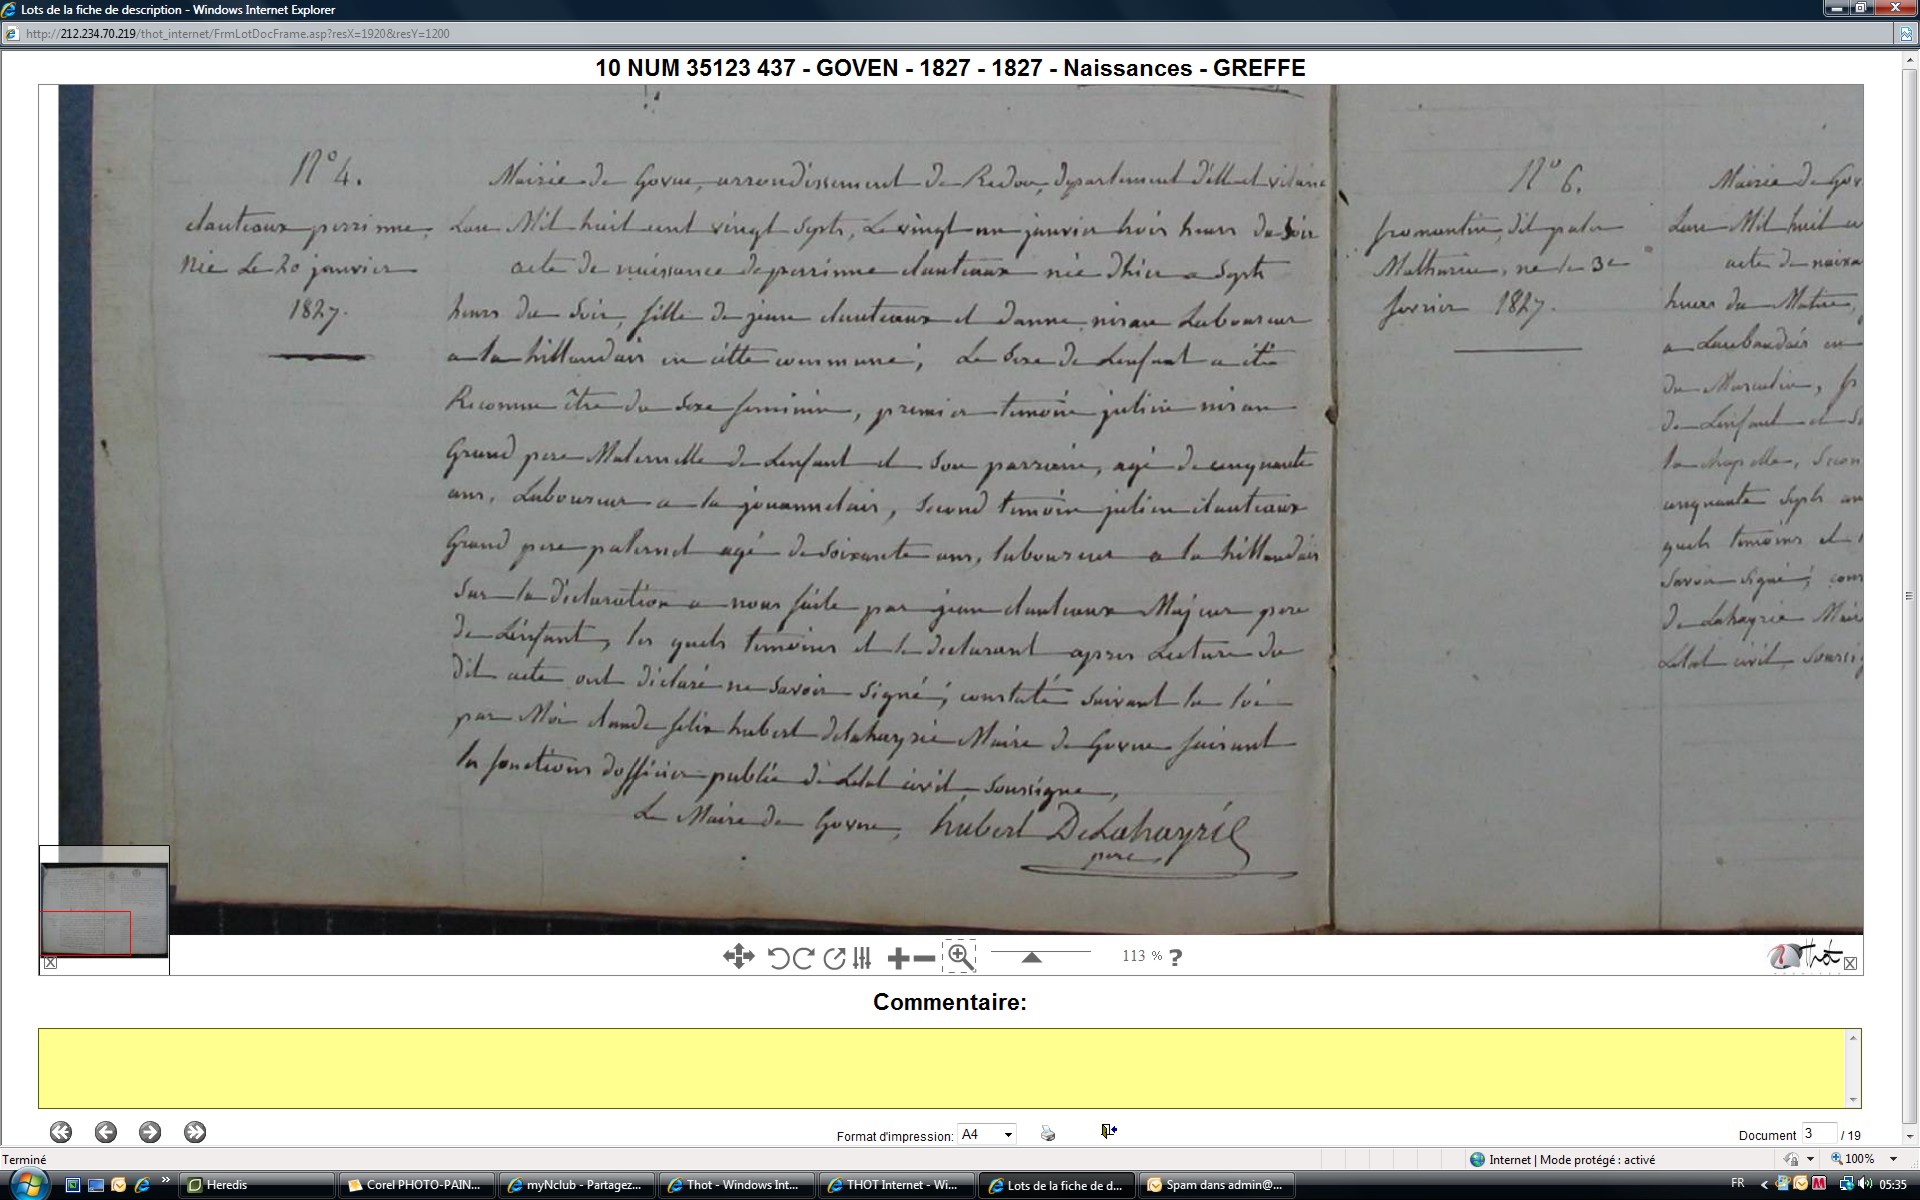 Lots de la fiche de description - Windows Internet Explorer
http://212.234.70.219/thot_internet/FrmLotDocFrame.asp?resX=1920&resY=1200
10 NUM 35123 437 - GOVEN - 1827 - 1827 - Naissances - GREFFE
N° 4.
dauteaux perrinne
née Le 20 janvier
1827.
Mairie de Goven, arrondissement de Redon, departement d'ille et vilaine
Lan Mil huit cent vingt Sept, Le vingt un janvier trois heures du Soir
acte de naissance de perrinne dauteaux née dhier a Sept
heures du Soir, fille de jean dauteaux et danne nivau Laboureur
a la hillaudais en cette commune; Le Sexe de Lenfant a été
Reconnu être du Sexe feminin, premier temoin julien nivau
Grand pere Maternelle de Lenfant et Son parrain, agé de cinquante
ans, Laboureur a la jouannelais, Second temoin julien dauteaux
Grand pere paternel agé de Soixante ans, laboureur a la hillaudais
Sur la declaration a nous faite par jean dauteaux Majeur pere
de Lenfant, les quels temoins et le declarant apres Lecture du
dit acte ont déclaré ne Savoir Signé, constaté Suivant la loi
par Moi claude felix hubert delahayrie Maire de Goven faisant
les fonctions dofficier public de Letat civil, Soussigné,
Le Maire de Goven, hubert DeLahayrie
pere
N° 6.
fromentin, dit
Mathurin, né le 3e
fevrier 1827.
Mairie de Gov
Lan Mil huit ce
acte de naissa
heures du Matin,
a
du Masculin,
de Lenfant et S
la chapelle, Secon
cinquante Sept an
quels temoins et l
Savoir Signé, cons
de Lahayrie Mair
Letat civil, Soussig
113 % ?
Thot
Commentaire:
Format d'impression: A4
Document 3 / 19
Terminé
Internet | Mode protégé : activé
100%
Heredis
Corel PHOTO-PAIN...
myNclub - Partagez...
Thot - Windows Int...
THOT Internet - Wi...
Lots de la fiche de d...
Spam dans admin@...
FR
05:35